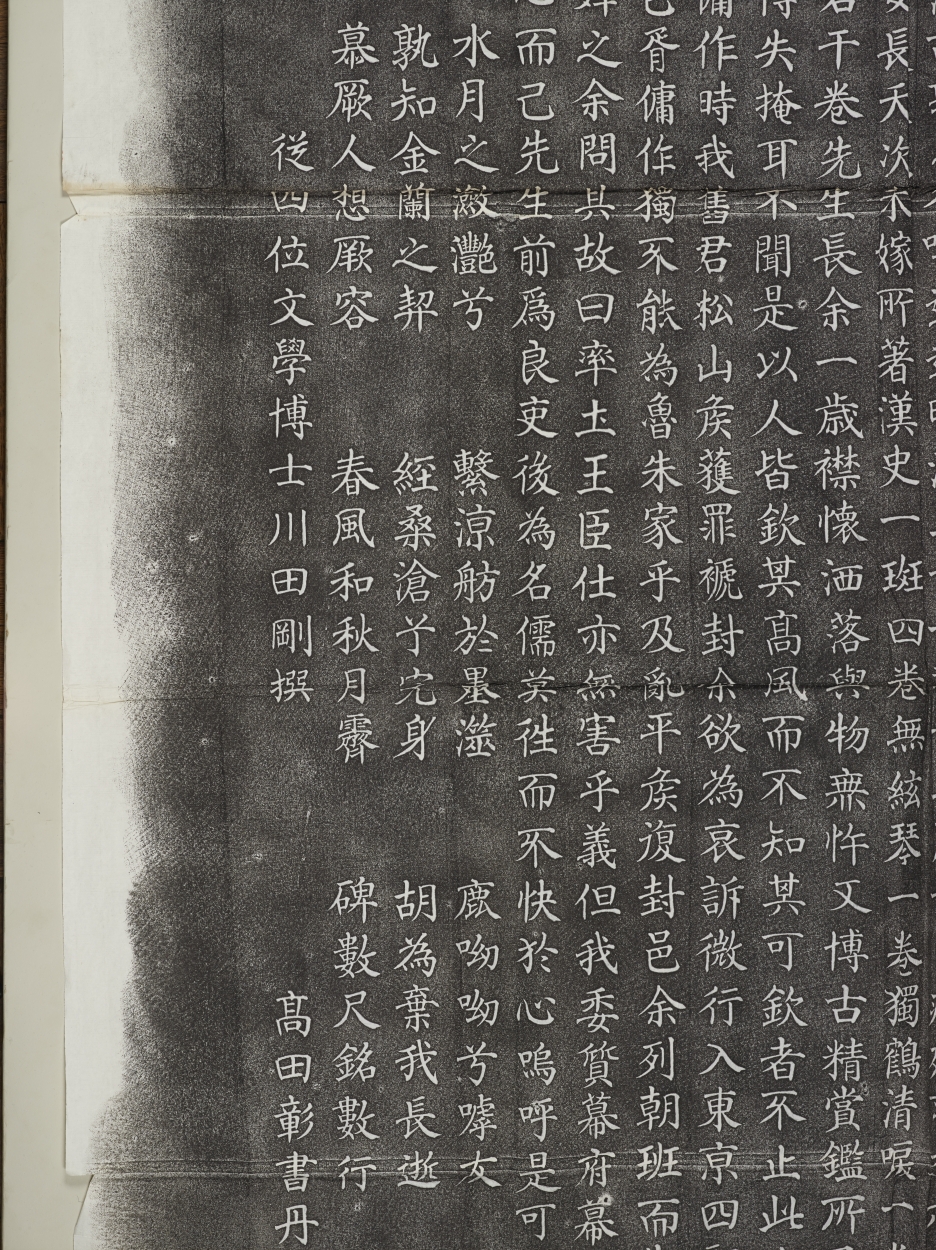 長天次未嫁所著漢史一班四巻無絃琴一巻獨鶴清唳一
干巻先生長余一歳襟懐洒落與物無忤又博古精賞鑑所
失掩耳不聞是以人皆欽其髙風而不知其可欽者不止此
備作時我舊君松山矦蒦罪褫封余欲為哀訴微行入東亰四
胥傭作獨不能為魯朱家乎及亂平矦復封邑余列朝班而
之余問其故曰率土王臣仕亦無害乎義但我委質幕府幕
而己先生前爲良吏後為名儒莫徃而不快於心嗚呼是可
水月之瀲灔兮 繋涼舫於墨澨 鹿呦呦兮嘑女
孰知金蘭之契 經桑滄兮完身 胡為棄我長逝
慕厥人想厥容 春風和秋月霽 碑數尺銘數行
従四位文學博士川田剛撰 髙田彰書丹